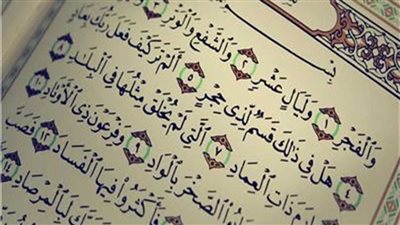 بِسْمِ
وَالْفَجْرِ ١ وَلَيَالٍ عَشْرٍ ٢ وَالشَّفْعِ وَالْوَتْرِ
٤ هَلْ فِي ذَٰلِكَ قَسَمٌ لِّذِي حِجْرٍ ٥ أَلَمْ تَرَ كَيْفَ فَعَلَ رَبُّكَ بِعَادٍ
ذَاتِ الْعِمَادِ ٧ الَّتِي لَمْ يُخْلَقْ مِثْلُهَا فِي الْبِلَٰدِ ٨
الصَّخْرَ بِالْوَادِ ٩ وَفِرْعَوْنَ ذِي الْأَوْتَادِ ١٠
فَأَكْثَرُوا فِيهَا الْفَسَادَ ١٢ فَصَبَّ
رَبَّكَ لَبِالْمِرْصَادِ ١٤